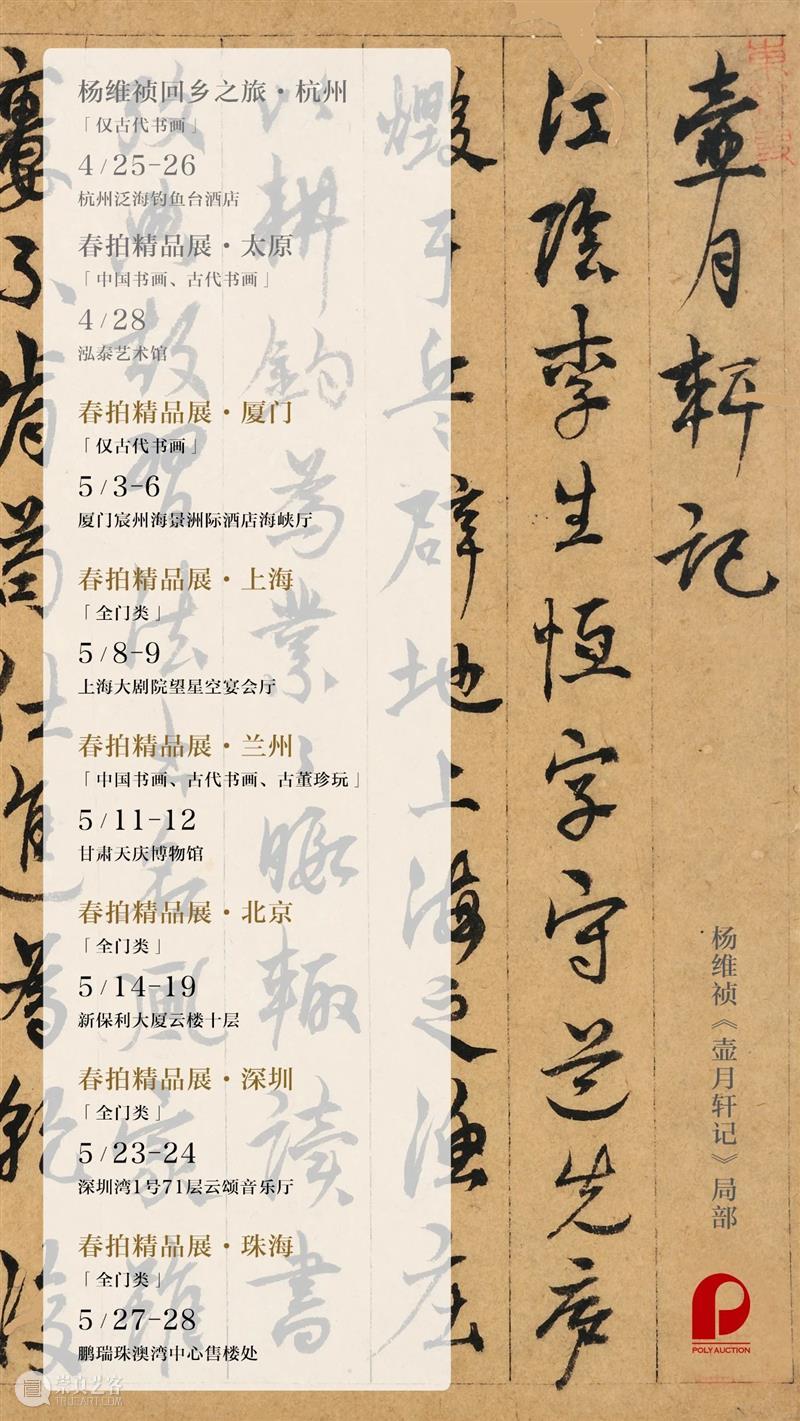 杨维祯回乡之旅·杭州
「仅古代书画」
4/25-26
杭州泛海钓鱼台酒店
春拍精品展·太原
「中国书画、古代书画」
4/28
泓泰艺术馆
春拍精品展·厦门
「仅古代书画」
5/3-6
厦门宸州海景洲际酒店海峡厅
春拍精品展·上海
「全门类」
5/8-9
上海大剧院望星空宴会厅
春拍精品展·兰州
「中国书画、古代书画、古董珍玩」
5/11-12
甘肃天庆博物馆
春拍精品展·北京
「全门类」
5/14-19
新保利大厦云楼十层
春拍精品展·深圳
「全门类」
5/23-24
深圳湾1号71层云颂音乐厅
春拍精品展·珠海
「全门类」
5/27-28
鹏瑞珠澳湾中心售楼处
壷月軒记
江陰李生恒字守道先序
地上海之漁庄
耕釣為業
讀書
杨维祯《壶月轩记》局部
POLY AUCTION
崇真艺客
TRUEART.COM